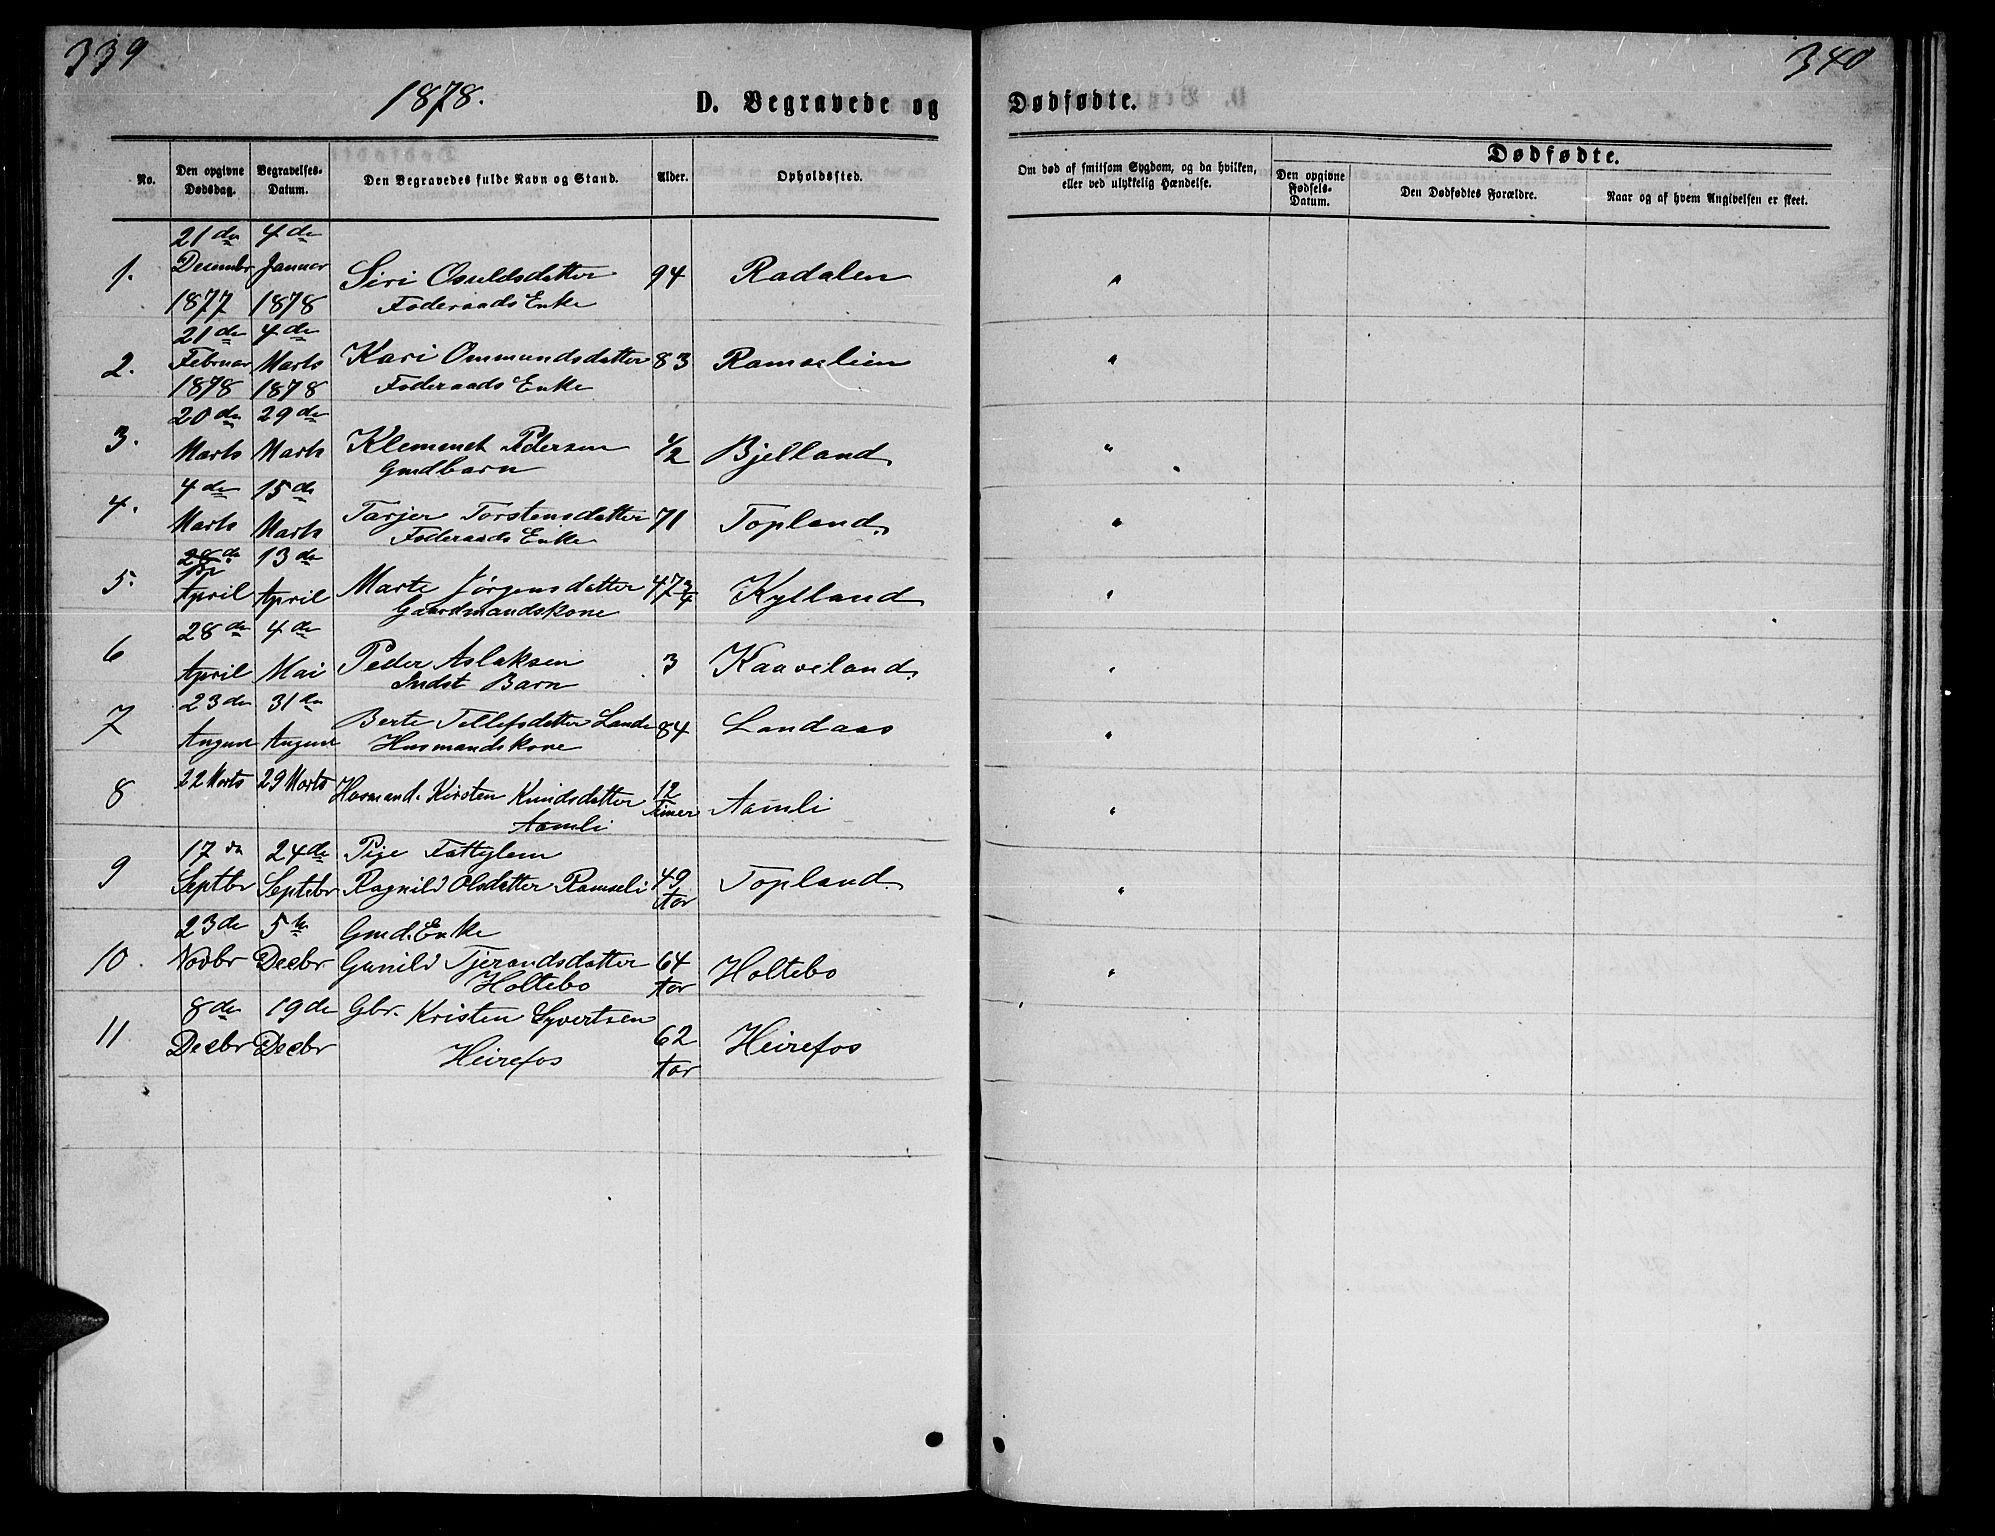 339
340
1878.
D. Begravede og Dødfødte.
No.
Den opgivne Dødsdag.
Begravelses-Datum.
Den Begravedes fulde Navn og Stand.
Alder.
Opholdssted.
Om død af smitsom Sygdom, og da hvilken,
eller ved ulykkelig Hændelse.
Dødfødte.
Den opgivne Fødsels-Datum.
Den Dødfødtes Forældre.
Naar og af hvem Angivelsen er skeet.
21de 4de
1. Decembr Januar Siri Osuldsdatter 94 Radalen "
1877 1878 Føderaads Enke
21de 4de
2. Februar Marts Kari Ommundsdatter 83 Ramseliin "
1878 1878 Føderaads Enke
20de 29de
3. Marts Marts Klemmet Pedersen 1/2 Bjelland "
Gmdbarn
4de 15de
4. Marts Marts Tarjer Torstensdatter 71 Topland "
Føderaads Enke
28de 13de
5. April April Marte Jørgensdatter 47 3/4 Kylland "
Gaardmandskone
28de 4de
6 April Mai Peder Aslaksen 3 Kaaveland "
Indst Barn
23de 31te
7 August August Berte Tellefsdatter Lande 84 Landaas "
Husmandskone
8 22 Marts 29 Marts Husmand. Kirsten Knudsdatter 12 Timer Aamli "
Aamli
17de 24de Pige Fattiglem
9 Septbr Septebr Ragnild Olsdatter Ramseli 49 Aar Topland "
23de 5te Gmd. Enke
10. Novbr Decbr Gunild Tjerandsdatter 64 Aar Holtebo "
Holtebo
8de 19de Gbr. Kristen Syvertsen
11 Decbr Decbr Heirefos 62 Aar Heirefos